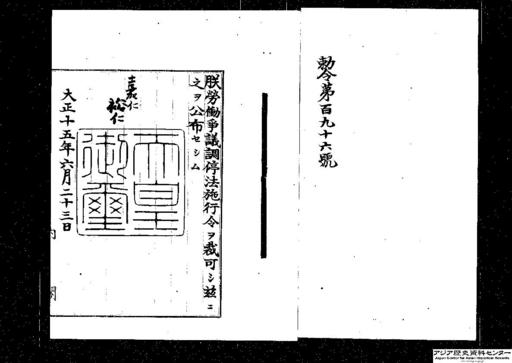 勅令第百九十六號
朕勞働爭議調停法施行令ヲ裁可シ茲ニ
之ヲ公布セシム
嘉仁
裕仁
天皇
御璽
大正十五年六月二十三日
内閣
アジア歴史資料センター
Japan Center for Asian Historical Records